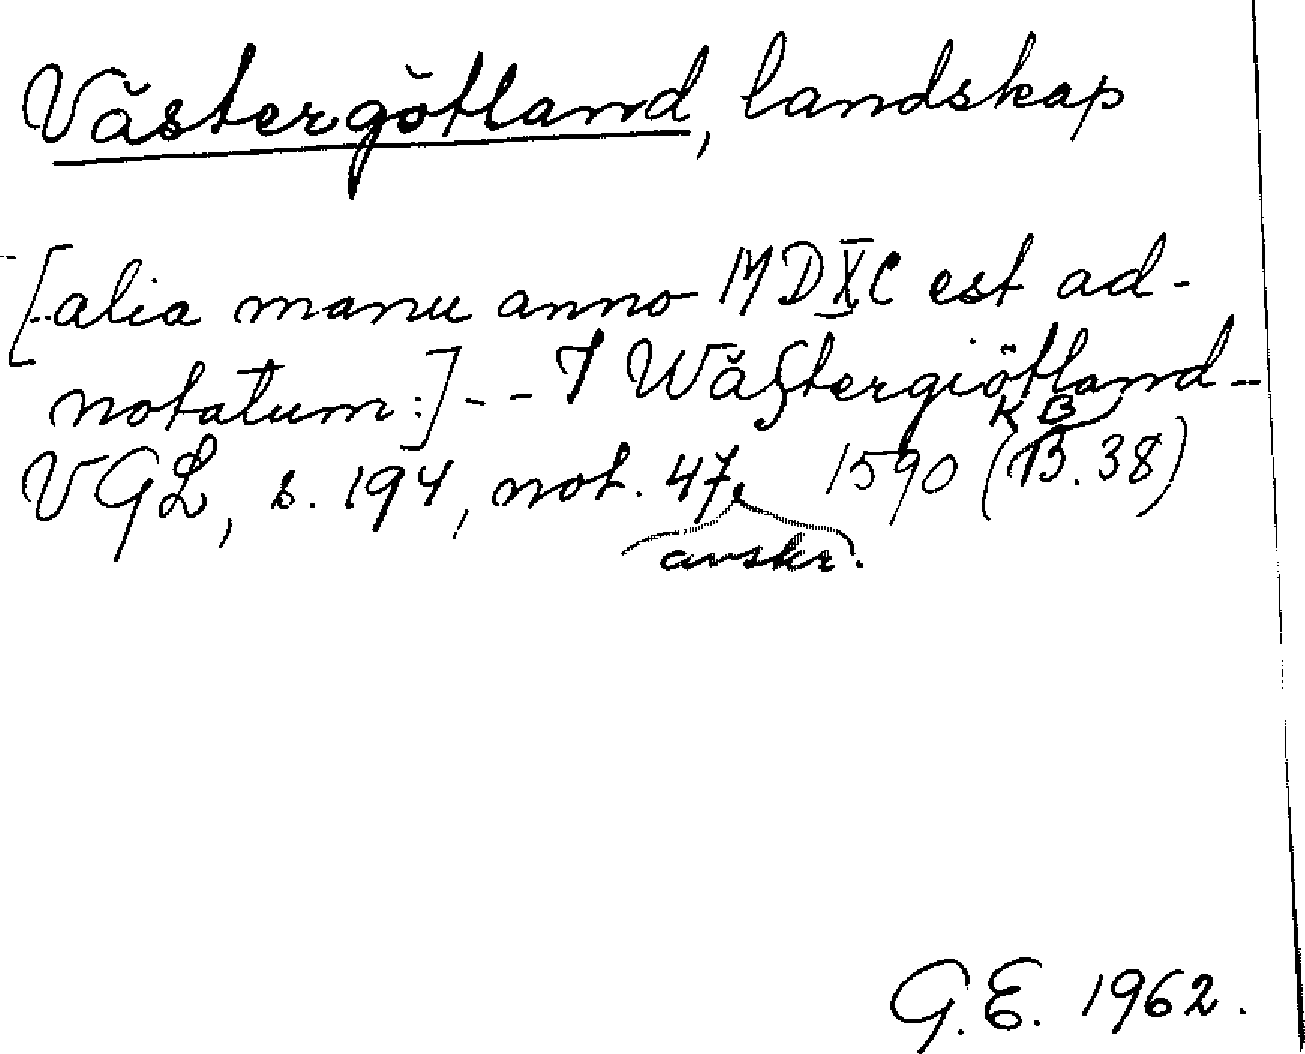 Västergötland, landskap
[:alia manu anno MDXC est ad-
notatum:] - - I Wästergiötland --
VGL, s. 194, not. 47, 1590 (KB B.38)
avskr.
G.E. 1962.